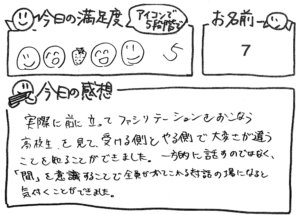 今日の満足度
アイコンで
5段階で
5
お名前
7
今日の感想
実際に前に立ってファシリテーションをおこなう
高校生を見て、受ける側とやる側で大変さが違う
ことを知ることができました。一方的に話すのではなく、
「間」を意識することで全員がたてこれる対話の場になると
気付くことができました。